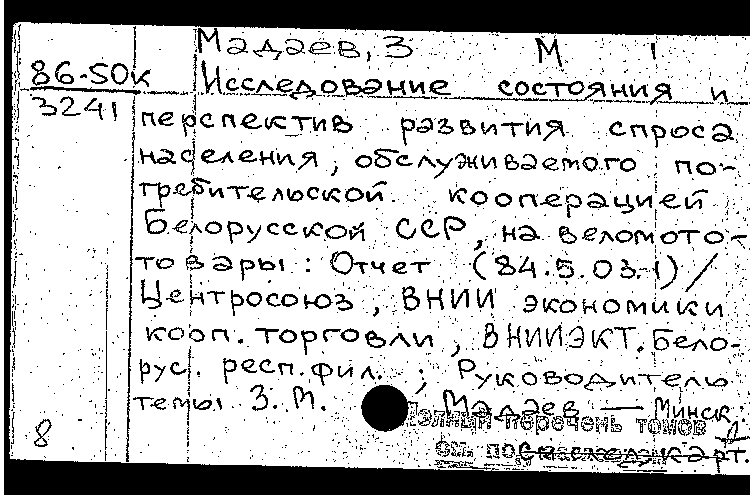 Мадаев, З М
86-50к Исследование состояния и
3241 перспектив развития спроса
населения, обслуживаемого по-
требительской кооперацией
Белорусской ССР, на веломото-
товары: Отчет (84.5.03.1) /
Центросоюз, ВНИИ экономики
кооп. торговли, ВНИИЭКТ. Бело-
рус. респ. фил. ; Руководитель
темы З. М. Мадаев — Минск.
Полный перечень томов
8 см. на карт.